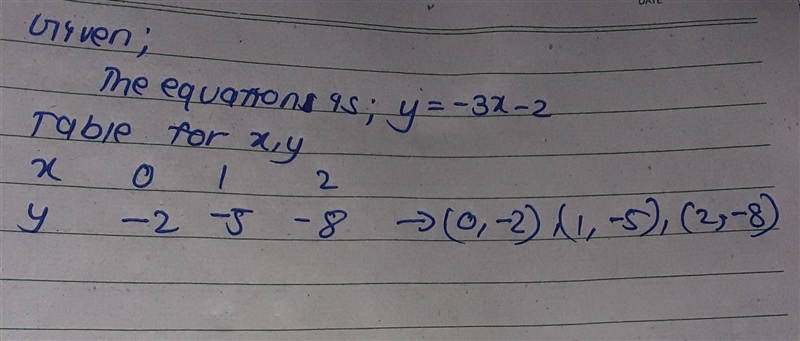 DATE
Given;
The equation is; y = -3x - 2
Table for x,y
x 0 1 2
y -2 -5 -8 → (0, -2), (1, -5), (2, -8)